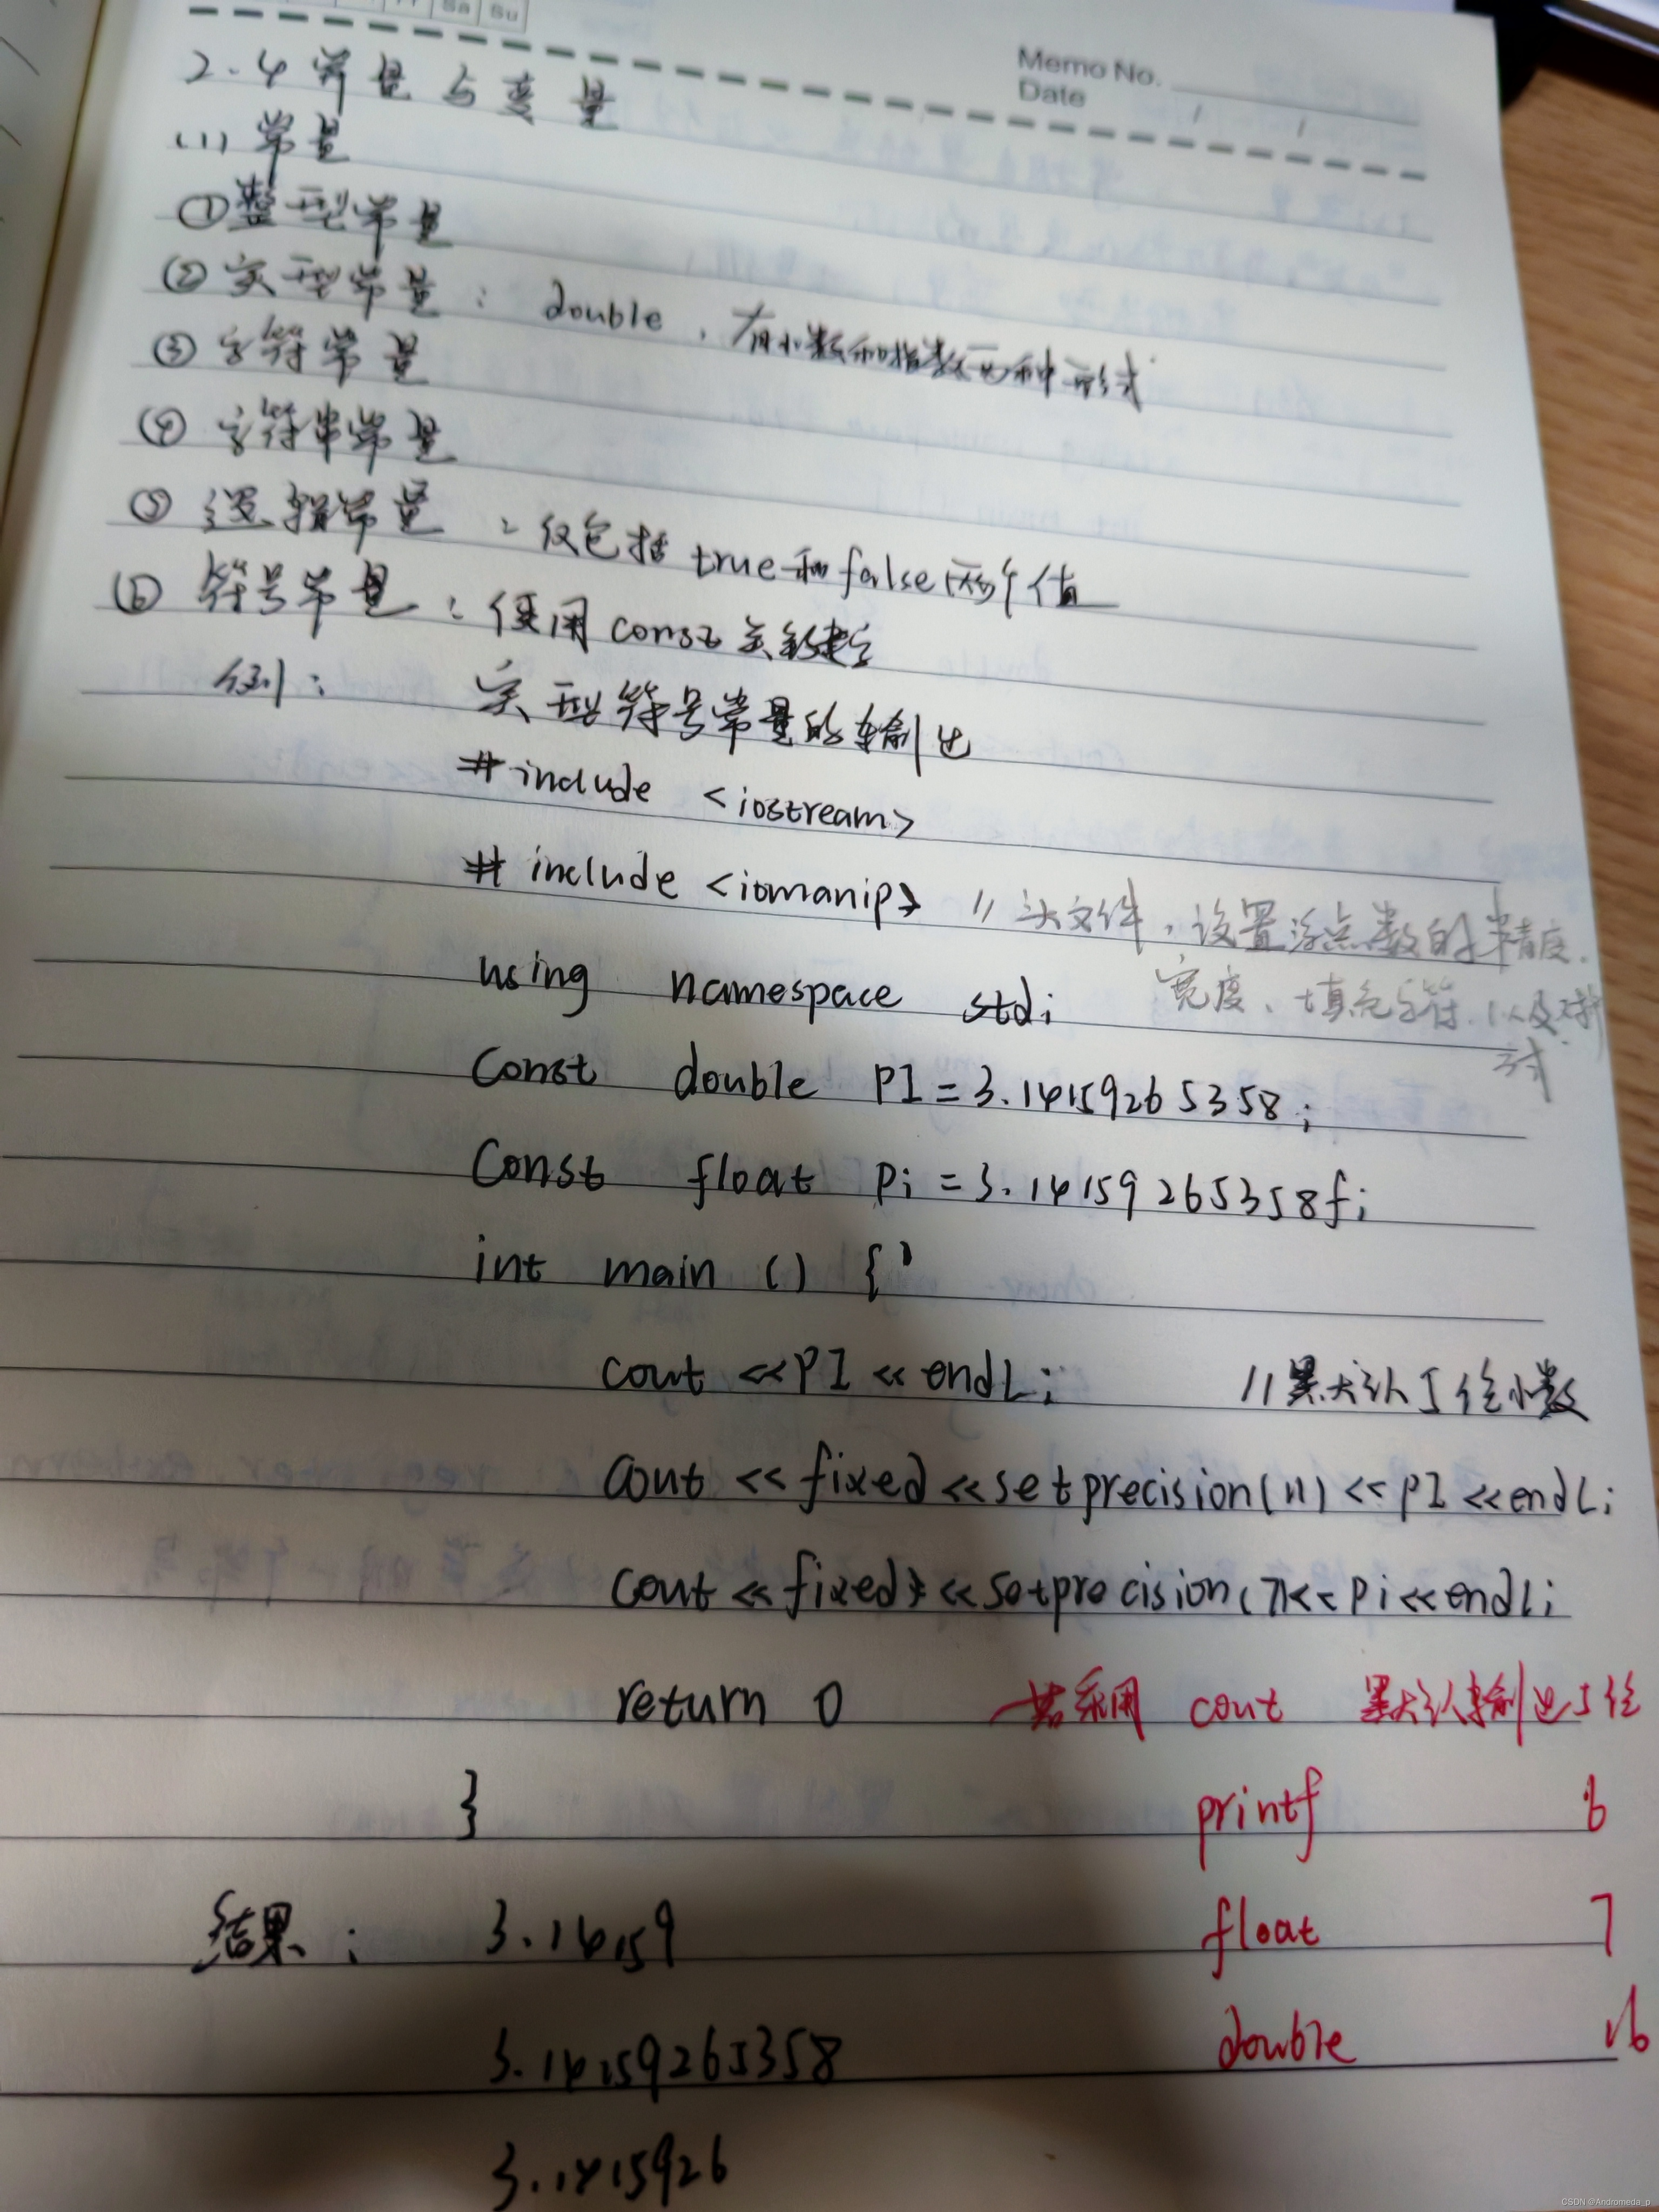 Sa Su
Memo No.
Date / /
2.4 常量与变量
(1) 常量
①整型常量
②实型常量：double，有小数和指数两种形式
③字符常量
④字符串常量
⑤逻辑常量：仅包括true和false两个值
⑥符号常量：使用const关键字
例：实型符号常量的输出
#include <iostream>
#include <iomanip> //头文件，设置浮点数的精度、
宽度、填充字符、以及对齐
方式
using namespace std;
Const double PI = 3.14159265358;
Const float Pi = 3.14159265358f;
int main () {
cout << PI << endl; //默认5位小数
cout << fixed << setprecision(11) << PI << endl;
cout << fixed << setprecision(7)<< Pi << endl;
return 0
若采用 cout 默认输出5位
}
printf 6
结果： 3.14159
float 7
3.14159265358
double 16
3.1415926
CSDN @Andromeda_p